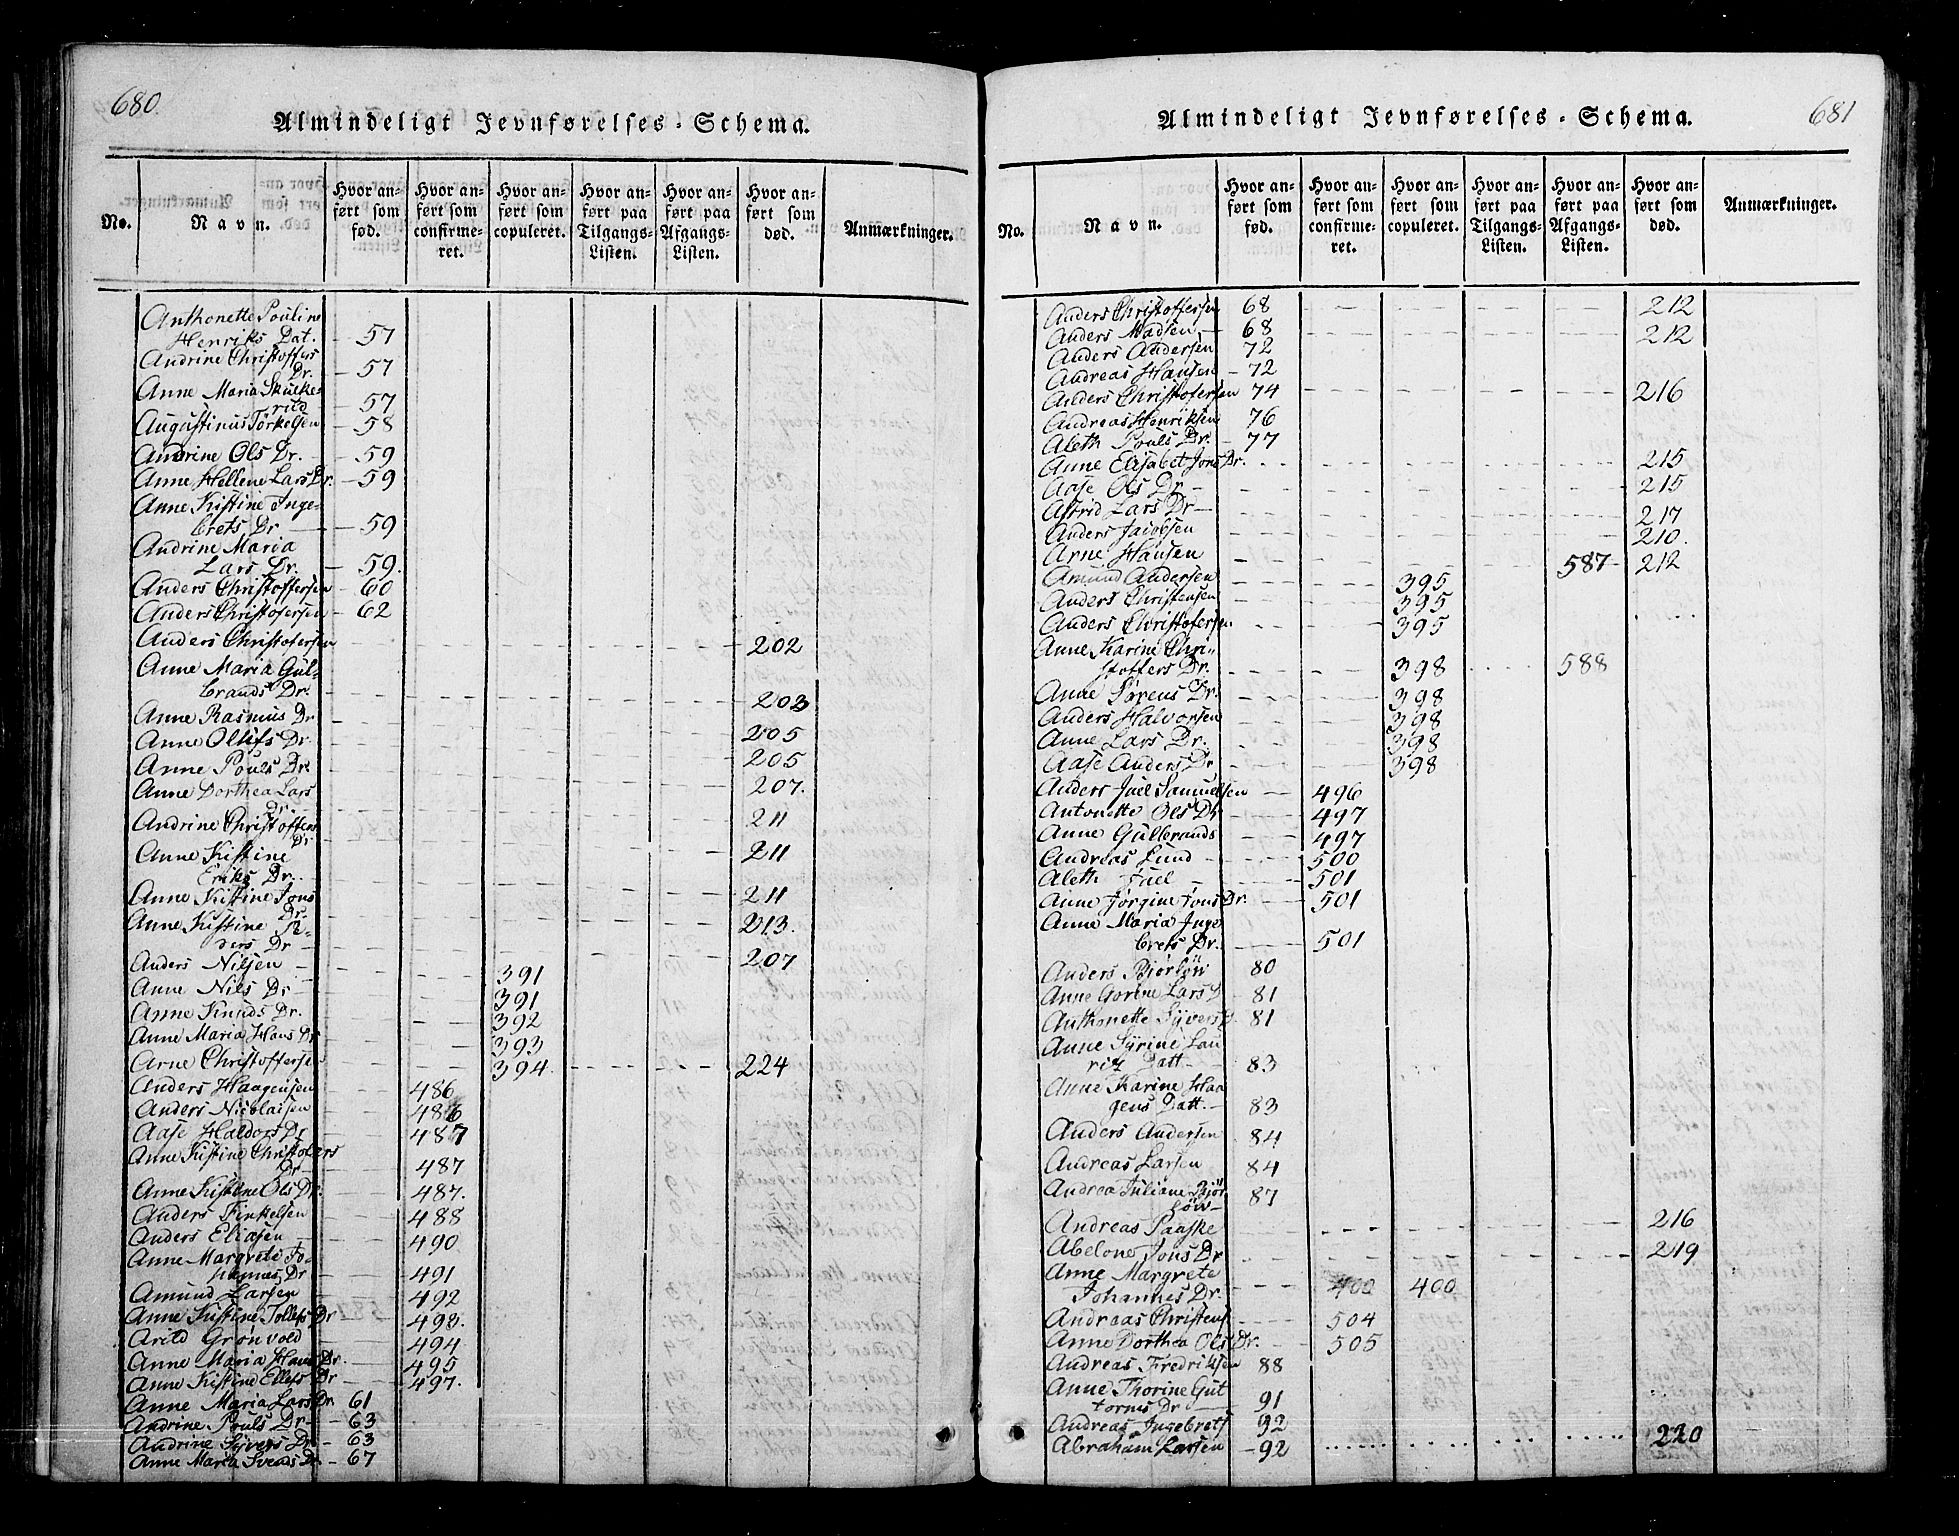 680.
Almindeligt Jevnførelses-Schema.
No.
Navn.
Hvor anført som fød.
Hvor anført som confirmeret.
Hvor anført som copuleret.
Hvor anført paa Tilgangs-Listen.
Hvor anført paa Afgangs-Listen.
Hvor anført som død.
Anmærkninger.
Anthonette Pouline
Henriks Dat. 57
Andrine Christoffers
Dr. 57
Anne Maria Skulke-
rud 57
Augustinus Torkelsen 58
Andrine Ols Dr. 59
Anne Hellene Lars Dr. 59
Anne Kistine Inge-
brets Dr 59
Andrine Maria
Lars Dr. 59.
Anders Christoffersen 60
Anders Christofersen 62
Anders Christofersen 202
Anne Maria Gul-
brands Dr. 203
Anne Rasmus Dr 205
Anne Ollefs Dr. 205
Anne Pouls Dr. 207.
Anne Dorthea Lars
Dr. 211
Andrine Christoffers
Dr 211
Anne Kistine
Eriks Dr. 211
Anne Kistine Jons
Dr. 213.
Anne Kistine Pe-
ders Dr 207
Anders Nilsen 391
Anne Nils Dr 391
Anne Knuds Dr. 392
Anne Maria Hans Dr 393
Arne Christoffersen 394 224
Anders Haagensen 486
Anders Nicolaisen 486
Aase Haldors Dr 487
Anne Kistine Christofers
Dr 487
Anne Kistine Ols Dr. 487.
Anders Finkelsen 488
Anders Eliasen 490
Anne Margrete Jo-
hannes Dr 491
Amund Larsen 492
Anne Kistine Tollefs Dr 493.
Arild Grönvold 494
Anne Maria Hans Dr. 495
Anne Kistine Ellefs Dr 497.
Anne Maria Lars Dr 61
Andrine Pouls Dr 63
Andrine Syvers Dr 63
Anne Maria Svends Dr. 67
681
Almindeligt Jevnførelses-Schema.
No.
Navn.
Hvor anført som fød.
Hvor anført som confirmeret.
Hvor anført som copuleret.
Hvor anført paa Tilgangs-Listen.
Hvor anført paa Afgangs-Listen.
Hvor anført som død.
Anmærkninger.
Anders Christoffersen 68 212
Anders Madsen 68 212
Anders Andersen 72
Andreas Hansen 72
Anders Christofersen 74 216
Andreas Henriksen 76
Aleth Pouls Dr. 77
Anne Elisabet Jons Dr. 215
Aase Ols Dr 215
Astrid Lars Dr 217
Anders Jacobsen 210.
Arne Hansen 587 212
Amund Andersen 395
Anders Christensen 395
Anders Christofersen 395
Anne Karine Chri-
stoffers Dr. 398 588
Anne Sørens Dr. 398
Anders Halvorsen 398
Anne Lars Dr. 398
Aase Anders Dr 398
Anders Juel Samuelsen 496
Antonette Ols Dr 497
Anne Gulbrands 497
Andreas Lund 500
Aleth Juel 501
Anne Jørgine Jons Dr. 501
Anne Maria Inge
brets Dr. 501
Anders Bjørløw 80
Anne Gorine Lars D 81
Anthonette Syvers D 81
Anne Syrine Lau
ritz Datt 83
Anne Karine Haa
gens Datt. 83
Anders Andersen 84
Andreas Larsen 84
Andrea Juliane Bjør
løw 87
Andreas Paaske 216
Abelone Jons Dr 219
Anne Margrete
Johannes Dr. 400 400
Andreas Christens 504
Anne Dorthea Ols Dr. 505
Andreas Fredriksen 88
Anne Thorine Gut
torms Dr 91
Andreas Ingebrets 92
Abraham Larsen 92 220